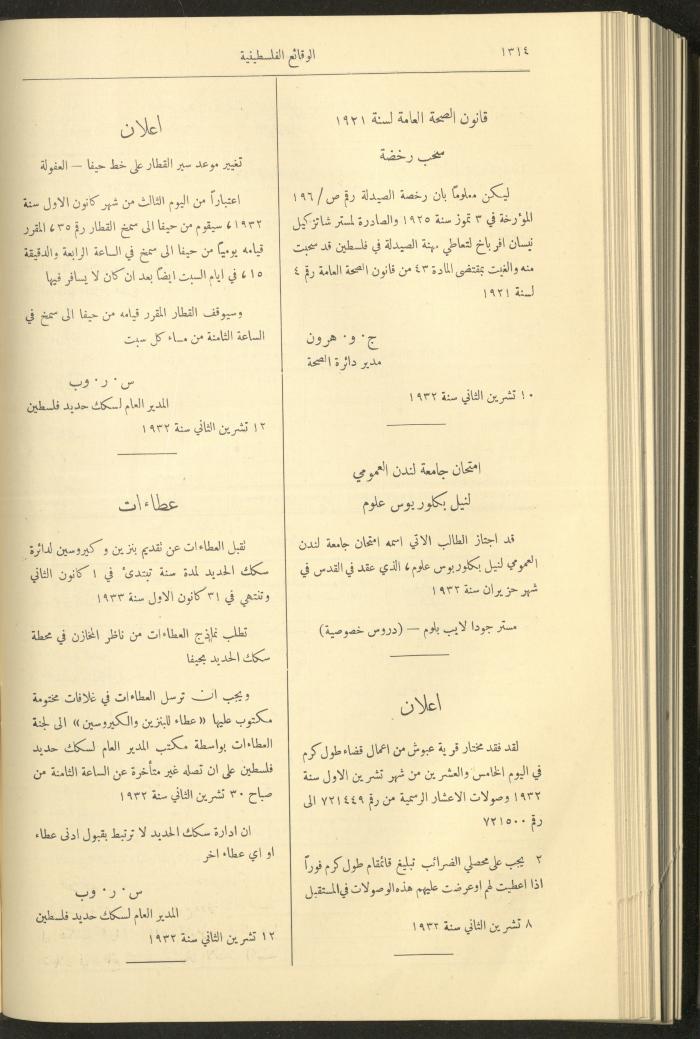 ١٣١٤
الوقائع الفلسطينية
قانون الصحة العامة لسنة ١٩٢١
سحب رخصة
ليكن معلومًا بان رخصة الصيدلة رقم ص/١٩٦
المؤرخة في ٣ تموز سنة ١٩٢٥ والصادرة لمستر شاتزكيل
نيسان افرباخ لتعاطي مهنة الصيدلة في فلسطين قد سحبت
منه والغيت بمقتضى المادة ٤٣ من قانون الصحة العامة رقم ٤
لسنة ١٩٢١
ج٠ و٠ هرون
مدير دائرة الصحة
١٠ تشرين الثاني سنة ١٩٣٢
امتحان جامعة لندن العمومي
لنيل بكلوريوس علوم
قد اجتاز الطالب الاتي اسمه امتحان جامعة لندن
العمومي لنيل بكلوريوس علوم، الذي عقد في القدس في
شهر حزيران سنة ١٩٣٢
مستر جودا لايب بلوم — (دروس خصوصية)
اعلان
لقد فقد مختار قرية عبوش من اعمال قضاء طول كرم
في اليوم الخامس والعشرين من شهر تشرين الاول سنة
١٩٣٢ وصولات الاعشار الرسمية من رقم ٧٢١٤٤٩ الى
رقم ٧٢١٥٠٠
٢ يجب على محصلي الضرائب تبليغ قائمقام طول كرم فوراً
اذا اعطيت لهم او عرضت عليهم هذه الوصولات في المستقبل
٨ تشرين الثاني سنة ١٩٣٢
اعلان
تغيير موعد سير القطار على خط حيفا — العفولة
اعتباراً من اليوم الثالث من شهر كانون الاول سنة
١٩٣٢، سيقوم من حيفا الى سمخ القطار رقم ٣٥، المقرر
قيامه يوميًا من حيفا الى سمخ في الساعة الرابعة والدقيقة
١٥، في ايام السبت ايضًا بعد ان كان لا يسافر فيها
وسيوقف القطار المقرر قيامه من حيفا الى سمخ في
الساعة الثامنة من مساء كل سبت
س٠ ر٠ وب
المدير العام لسكك حديد فلسطين
١٢ تشرين الثاني سنة ١٩٣٢
عطاءات
تقبل العطاءات عن تقديم بنزين وكيروسين لدائرة
سكك الحديد لمدة سنة تبتدئ في ١ كانون الثاني
وتنتهي في ٣١ كانون الاول سنة ١٩٣٣
تطلب نماذج العطاءات من ناظر المخازن في محطة
سكك الحديد بحيفا
ويجب ان ترسل العطاءات في غلافات مختومة
مكتوب عليها «عطاء للبنزين والكيروسين» الى لجنة
العطاءات بواسطة مكتب المدير العام لسكك حديد
فلسطين على ان تصله غير متأخرة عن الساعة الثامنة من
صباح ٣٠ تشرين الثاني سنة ١٩٣٢
ان ادارة سكك الحديد لا ترتبط بقبول ادنى عطاء
او اي عطاء اخر
س٠ ر٠ وب
المدير العام لسكك حديد فلسطين
١٢ تشرين الثاني سنة ١٩٣٢